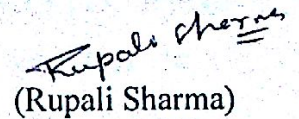 Rupali Sharma
(Rupali Sharma)